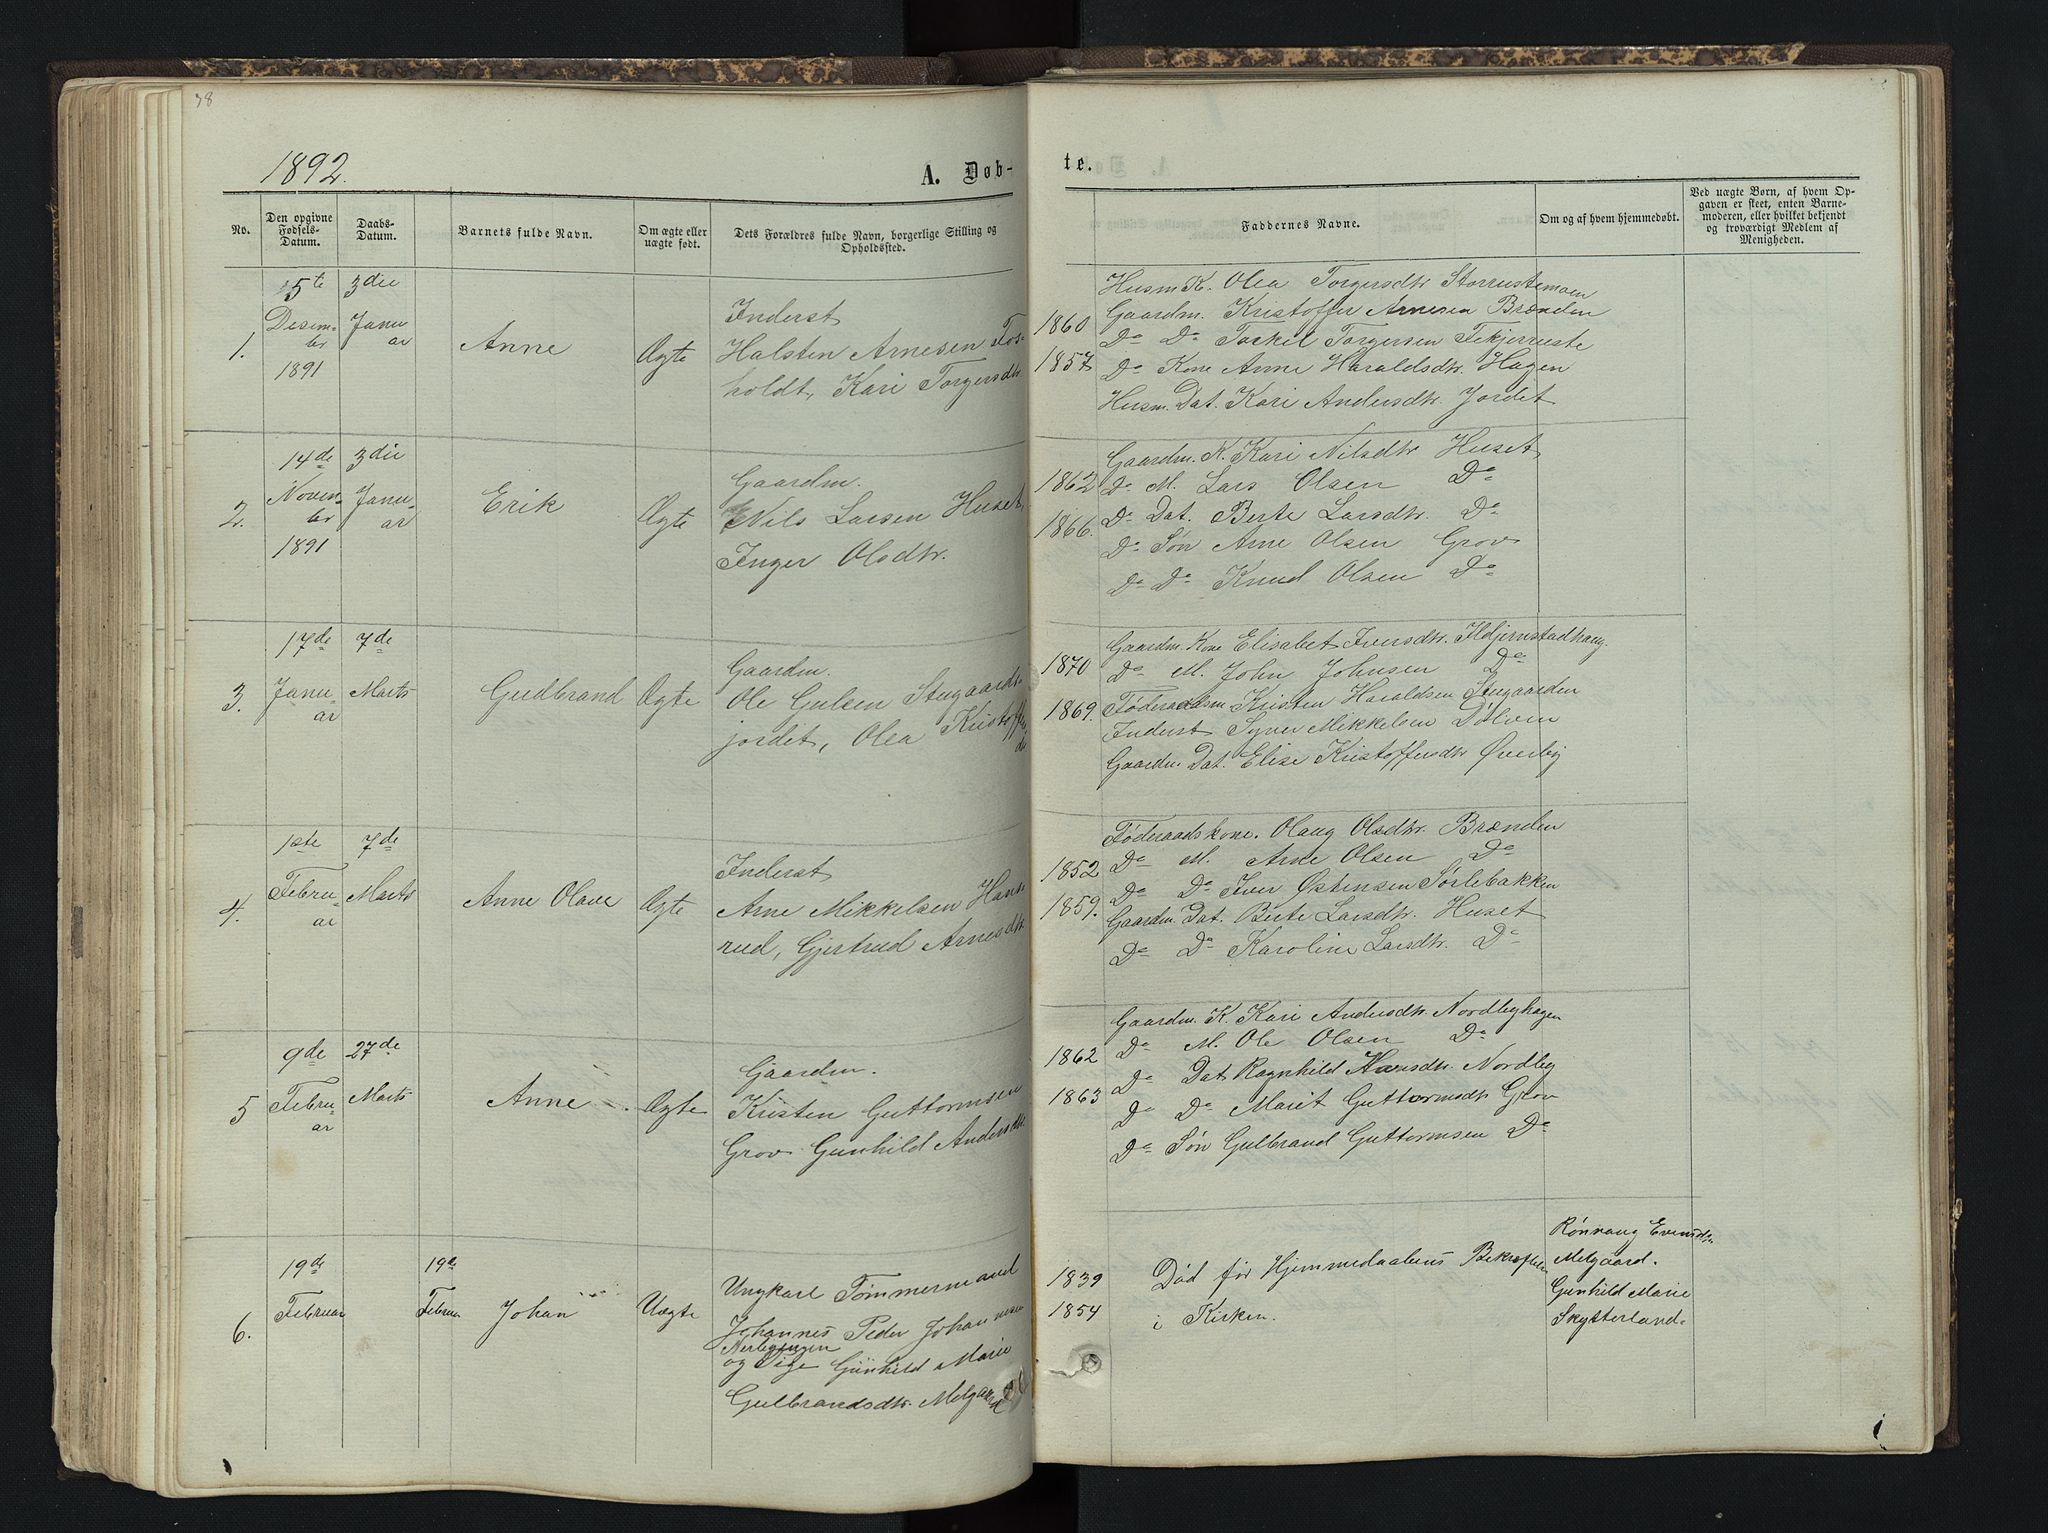 38
1892.
A. Døb-
te.
No.
Den opgivne
Fødsels-
Datum.
Daabs-
Datum.
Barnets fulde Navn.
Om ægte eller
uægte født.
Dets Forældres fulde Navn, borgerlige Stilling og
Opholdssted.
Faddernes Navne.
Om og af hvem hjemmedøbt.
Ved uægte Børn, af hvem Op-
gaven er skeet, enten Barne-
moderen, eller hvilket bekjendt
og troværdigt Medlem af
Menigheden.
1.
5te
Desem-
ber
1891
3die
Janu
ar
Anne
Ægte
Inderst
Halsten Arnesen Fos-
holdt, Kari Torgersdtr
1860
1857
Husm K. Olea Torgersdtr Storrustemoen
Gaardm. Kristoffer Arnesen Brænden
Do Do Torkel Torgersen Tekjerruste
Do Kone Anne Haraldsdtr. Hagen
Husm. Dat. Kari Andersdtr. Jordet
2.
14de
Novem-
ber
1891
3die
Janu-
ar
Erik
Ægte
Gaardm.
Nils Larsen Huset,
Inger Olsdtr.
1862
1866.
Gaardm. K. Kari Nilsdtr Huset
Do M. Lars Olsen Do
Do Dat. Berte Larsdtr. Do
Do Søn Arne Olsen Grov
Do Do Knud Olsen Do
3.
17de
Janu
ar
7de
Marts
Gudbrand
Ægte
Gaardm.
Ole Gulsen Stugaards-
jordet, Olea Kristoffers
dtr
1870
1869.
Gaardm. Kone Elisabet Iversdtr. Hjernstadhaug.
Do M. John Johnsen Do
Føderaadsm Kristen Haraldsen Stugaarden
Inderst Syver Mikkelsen Dølven
Gaardm. Dat. Elise Kristoffersdtr Øverby
4.
1ste
Febru-
ar
7de
Marts
Anne Olave
Ægte
Inderst
Arne Mikkelsen Hans-
rud, Gjertrud Arnesdtr.
1852
1859.
Føderaads kone. Olaug Olsdtr. Brænden
Do M. Arne Olsen Do
Do Do Iver Østensen Sørlebakken
Gaardm. Dat. Berte Larsdtr. Huset
Do Do Karoline Larsdtr. Do
5
9de
Febru-
ar
27de
Marts
Anne
Ægte
Gaardm.
Kristen Guttormsen
Grov Gunhild Andersdtr.
1862
1863
Gaardm. K. Kari Andersdtr. Nordbyhagen
Do M. Ole Olsen Do
Do Dat Ragnhild Hansdtr. Nordby
Do Do Marit Guttormsdtr Grov
Do Søn Gulbrand Guttormsen Do
6.
19de
Februar
19de
Februar
Johan
Uægte
Ungkarl Tømmermand
Johannes Peder Johannesen
og Pige Gunhild Marie
Gulbrandsdtr. Melgaard
1839
1854
Død før Hjemmedaabens Bekræftelse
i Kirken.
Rønnaug Evensdtr
Melgaard.
Gunhild Marie
Skytterland.